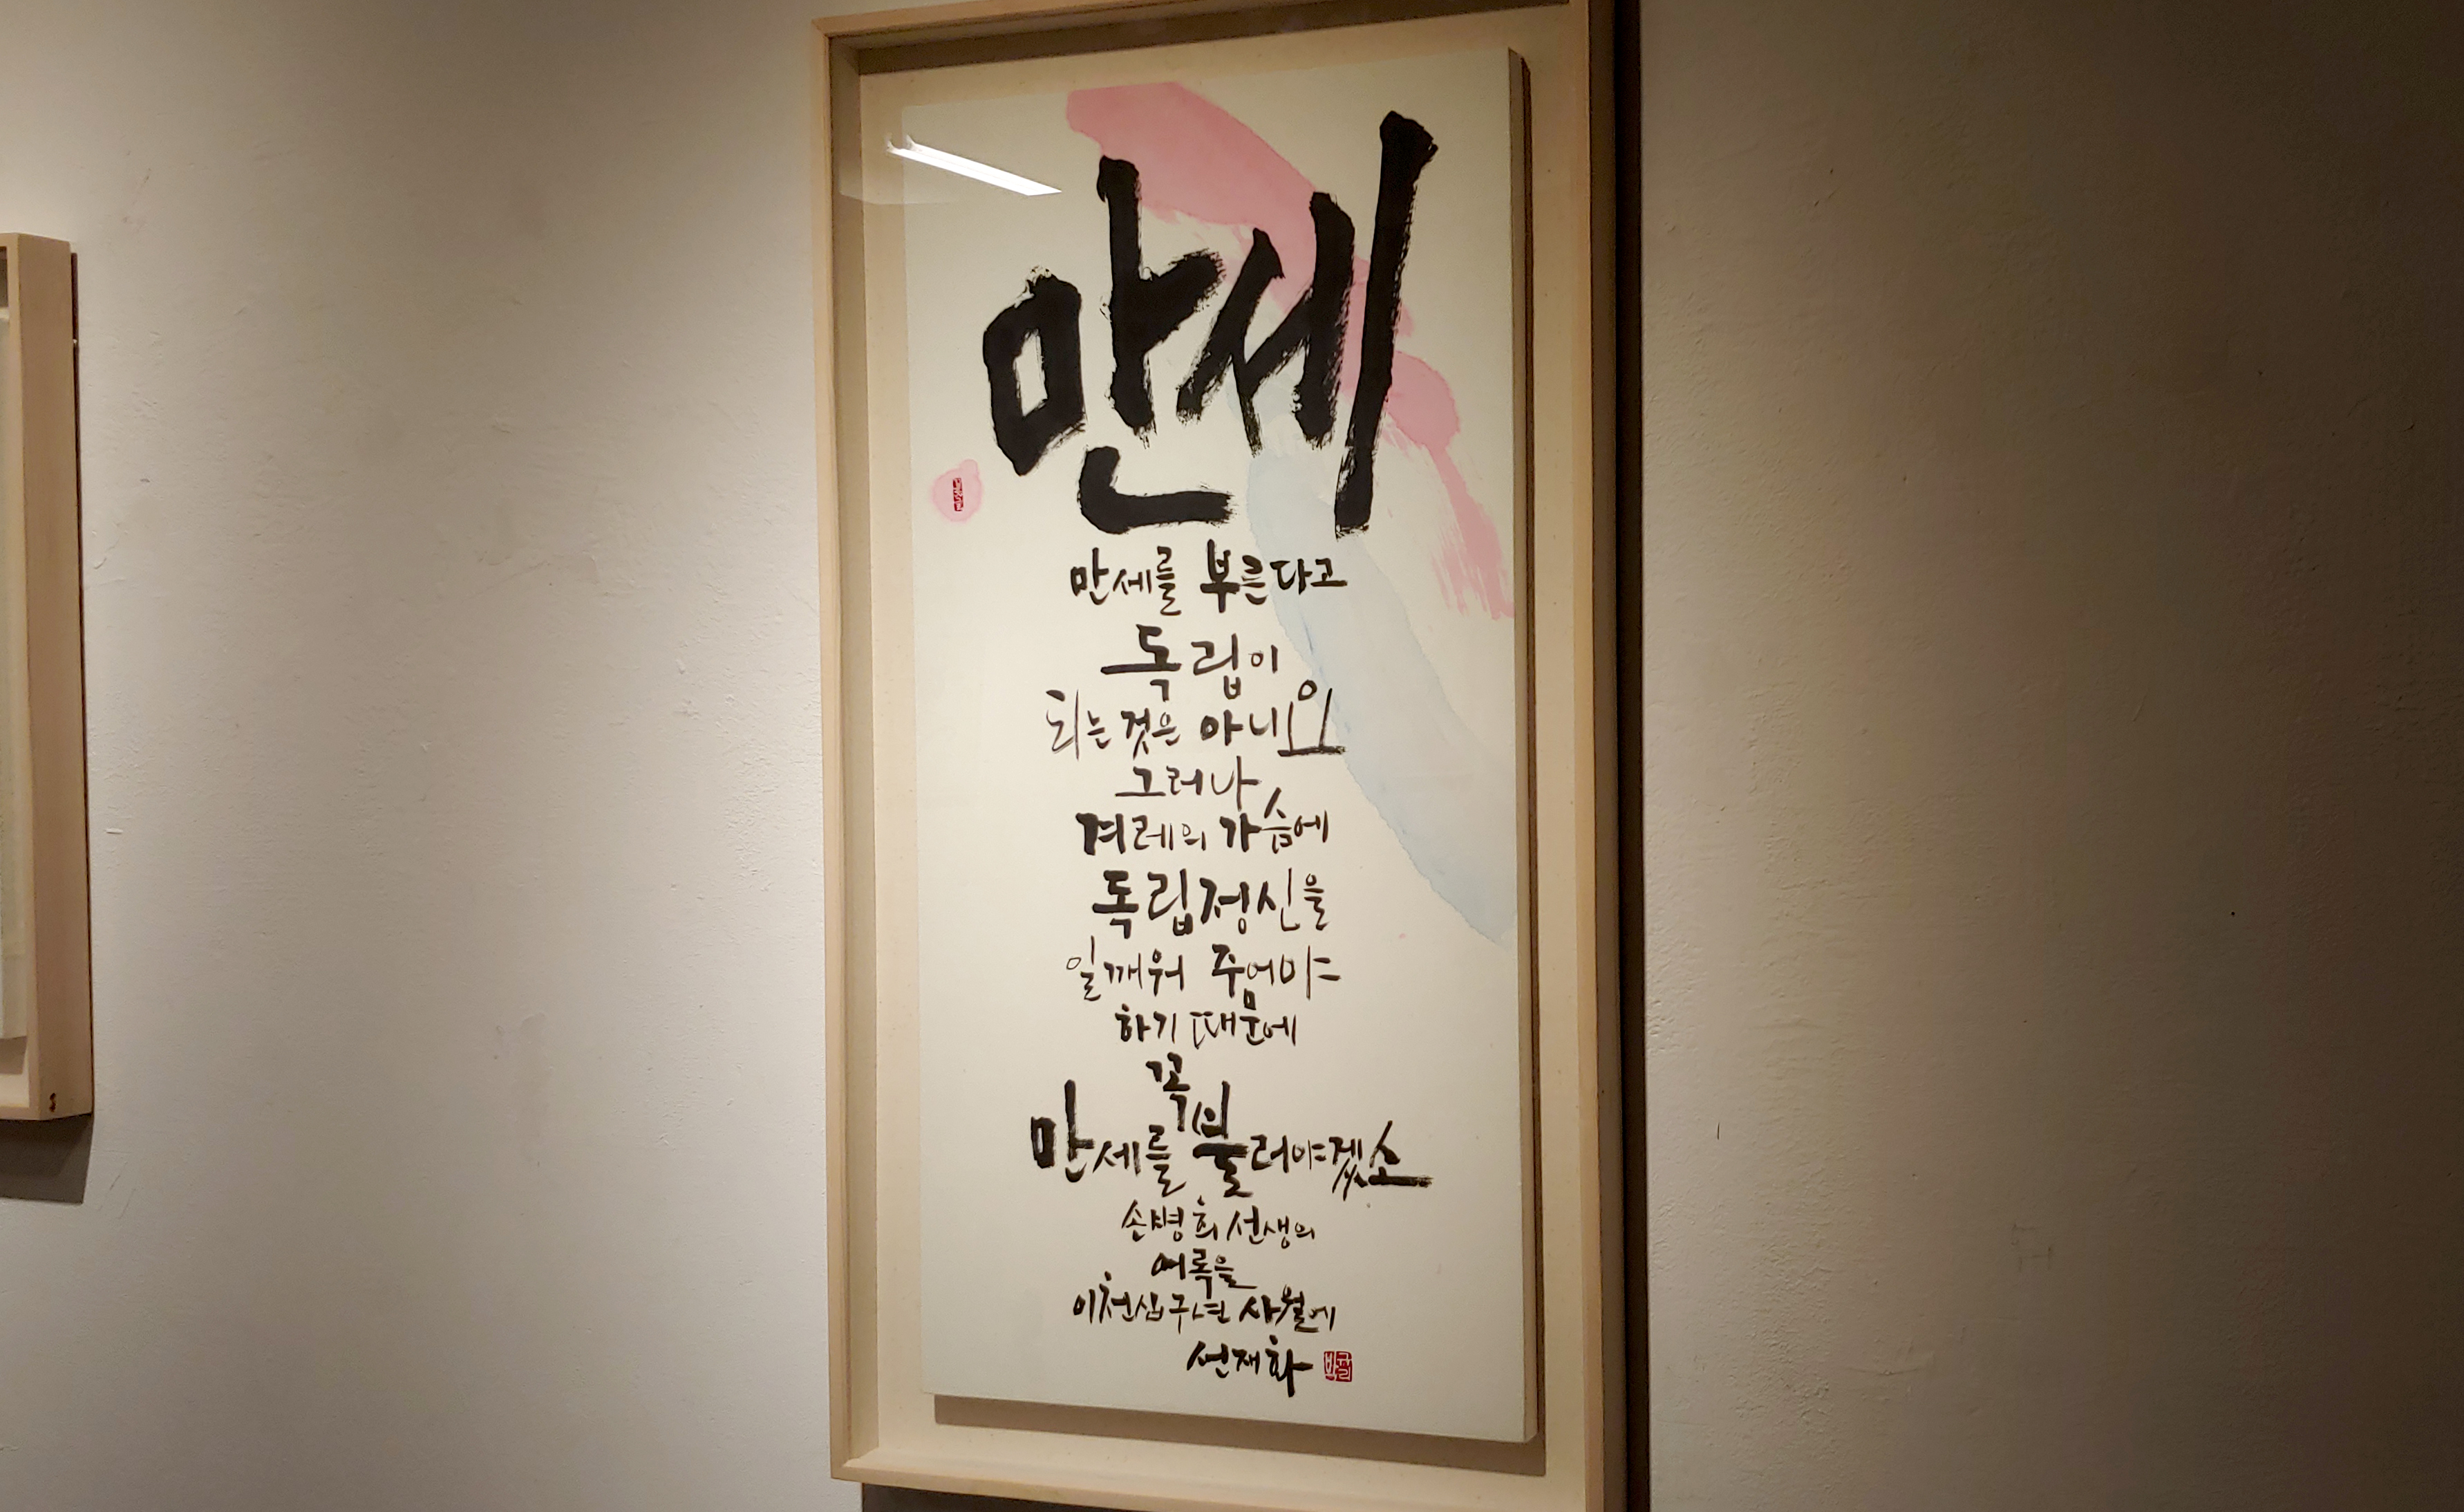 만세
만세를 부른다고
독립이
되는 것은 아니요
그러나
겨레의 가슴에
독립정신을
일깨워 주어야
하기 때문에
꼭
만세를 불러야겠소
손병희 선생의
어록을
이천십구년 사월에
선재화